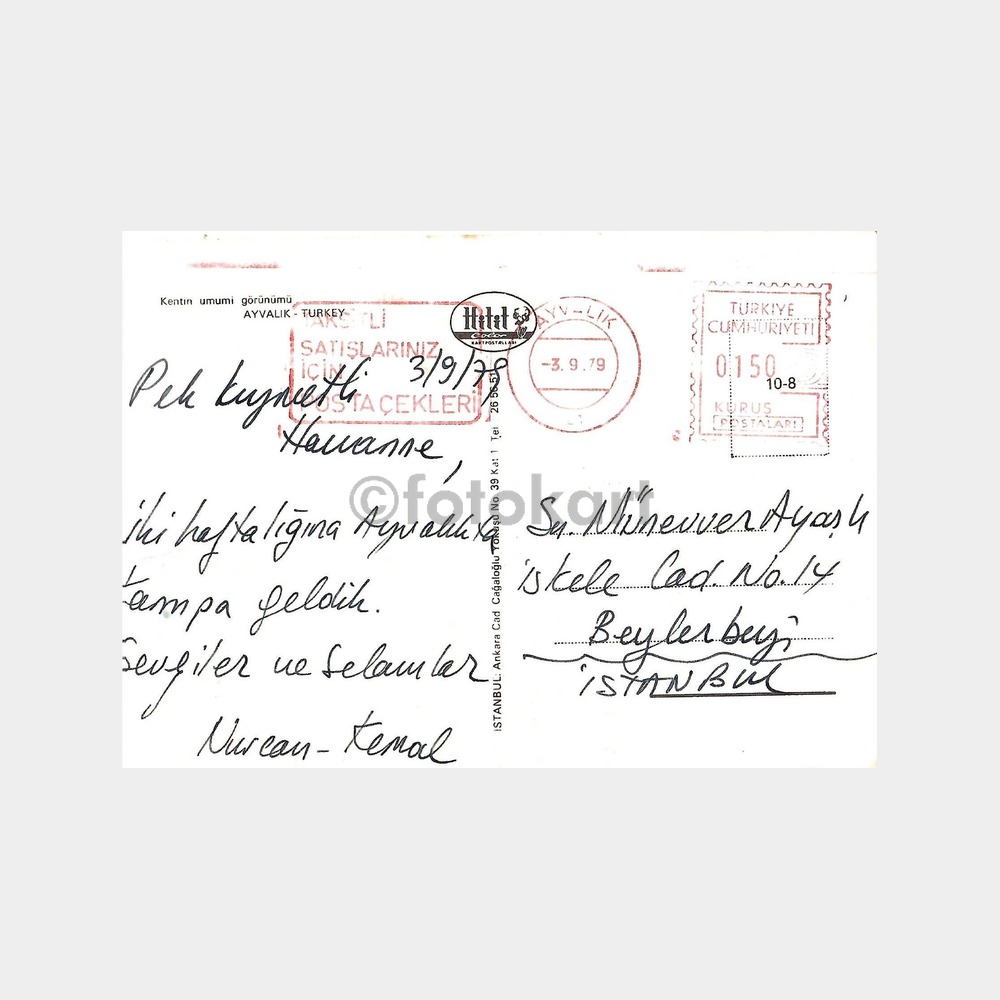 Kentin umumi görünümü
AYVALIK - TURKEY
Hitit
Color
KARTPOSTALLARI
TAKSİTLİ
SATIŞLARINIZ
İÇİN
POSTA ÇEKLERİ
AYVALIK
-3.9.79
TÜRKİYE
CUMHURİYETİ
0150
10-8
KURUŞ
POSTALARI
3/9/79
Pek kıymetli
Havanne,
iki haftalığına Ayvalıkta
kampa geldik.
Sevgiler ve Selamlar
Nurcan - Kemal
İSTANBUL: Ankara Cad Cağaloğlu Yokuşu No. 39 Kat 1 Tel 26 56 51
©fotokart
Sn. Münevver Ayaşlı
iskele Cad. No. 14
Beylerbeyi
İSTANBUL